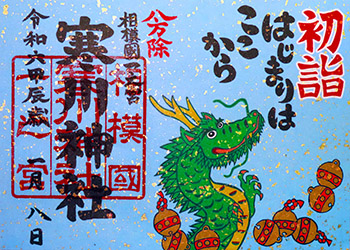 初詣
はじまりは
ここ
から
八方除
相模國一之宮
寒川神社
相模國
一之宮
令和六甲辰歳
一月八日